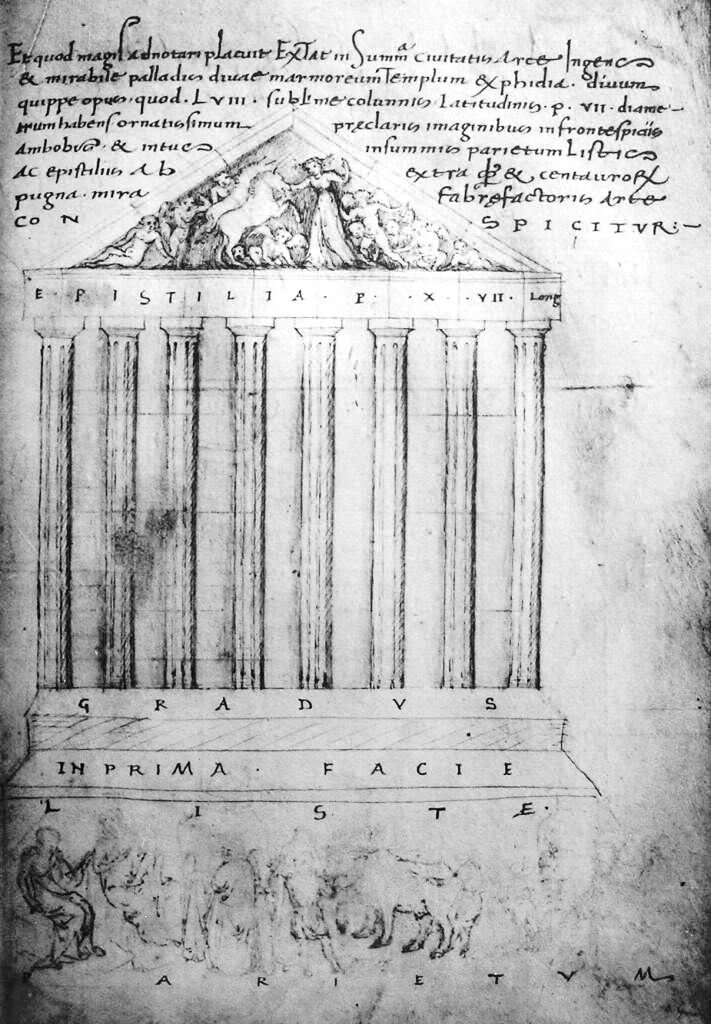 Et quod magis adnotari placuit Extat in Summa Civitatis Arce Ingens
& mirabile palladis divae marmoreum Templum ex phidia. divum
quippe opus. quod. LVIII. sublime columnis Latitudinis. p. VII. diame-
trum habens ornatissimum praeclaris imaginibus in frontespiciis
ambobus. & intus in summis parietum Listis
ac epistiliis ab extra & centauro
pugna. mira Fabrefactoris Arte
CON SPICITUR:-
E.PISTILIA.P. .X.VII. Long
GRADVS
IN PRIMA. FACIE
LISTE.
PARIETVM